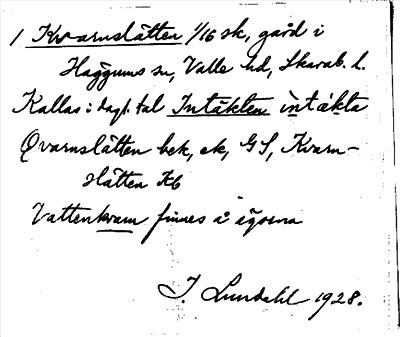 1 Kvarnslätten 1/16 sk, gård i
Häggums sn, Valle hd, Skarab. l.
Kallas i dagl. tal Intäkten ìntä́kta
Qvarnslätten bek, ek, GS, Kvarn-
slätten Kb
Vattenkvarn finnes å ägorna
J. Lundahl 1928.